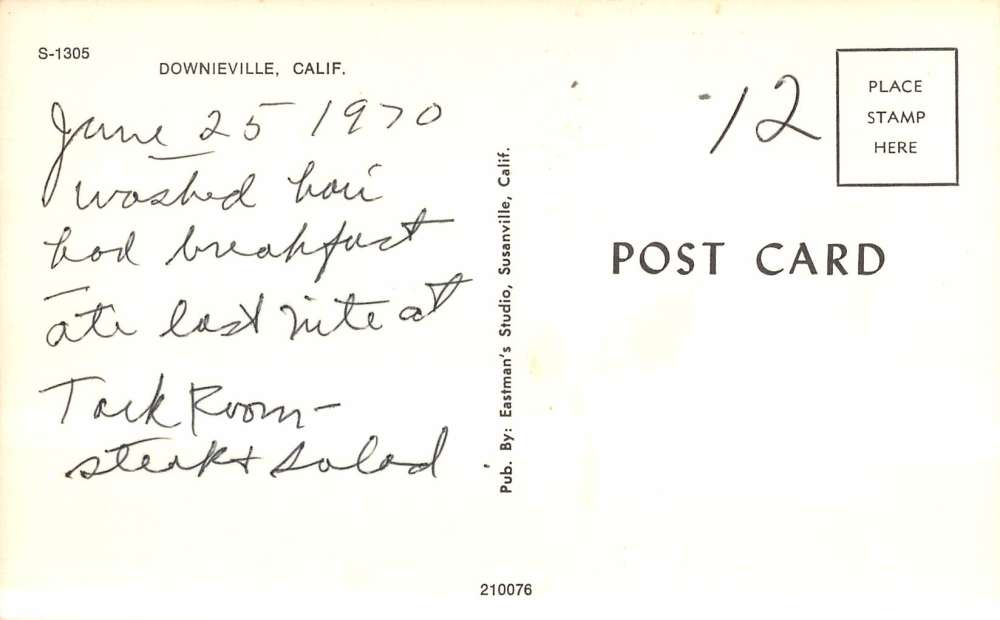 S-1305
DOWNIEVILLE, CALIF.
June 25 1970
washed hair
had breakfast
ate last nite at
Tack Room -
steak + salad
Pub. By: Eastman's Studio, Susanville, Calif.
-12
PLACE
STAMP
HERE
POST CARD
210076